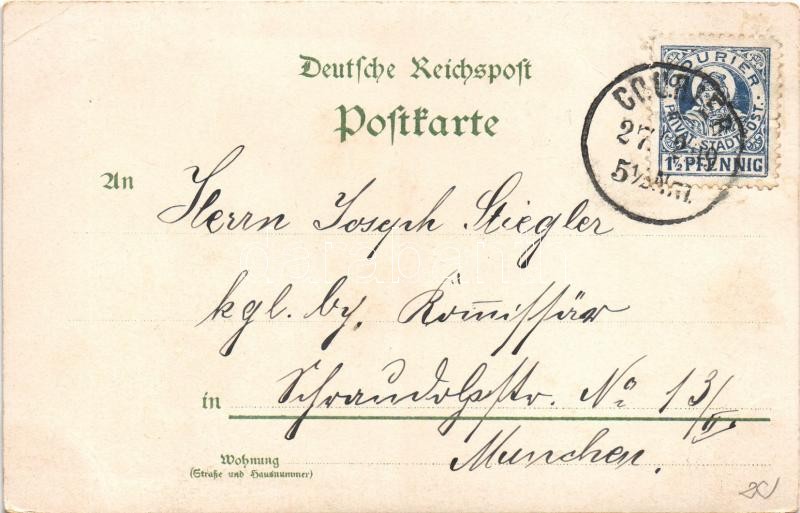 Deutsche Reichspost
Postkarte
COURIER
PRIVAT-STADT-POST
1½ PFENNIG
COURIER
27.
5½
An
Herrn Joseph Stiegler
kgl. by. Kom̅issär
in Schraudolphstr. No 13/II.
München.
Wohnung
(Straße und Hausnummer)